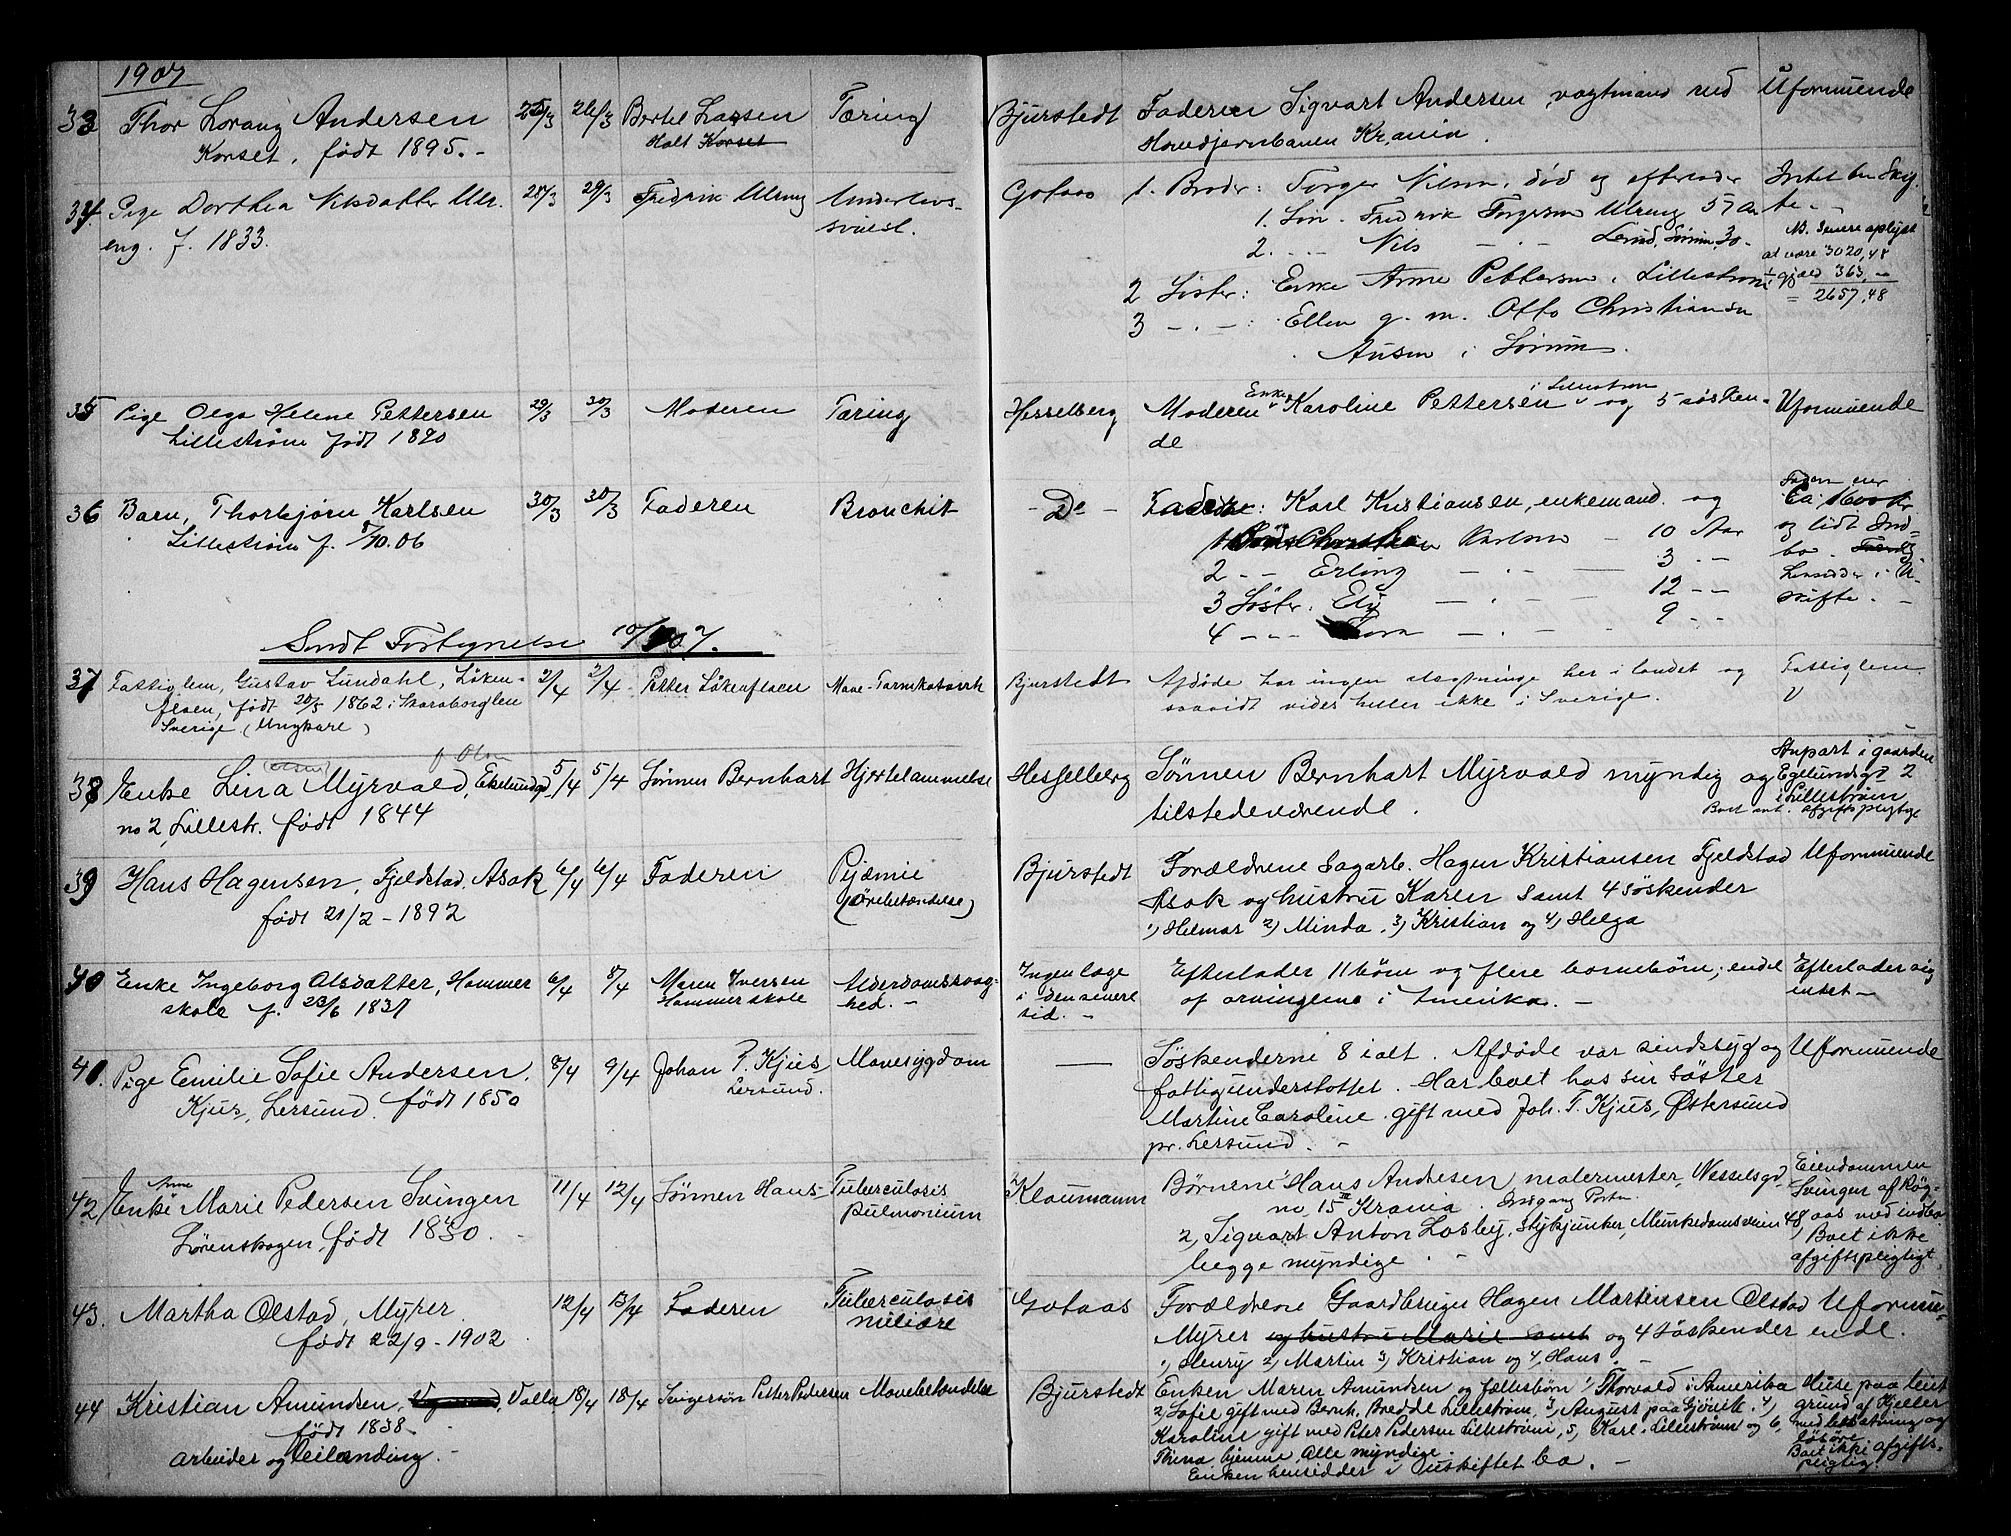 1907
33 Thor Lorang Andersen 25/3 26/3 Bertel Larsen Tæring Bjurstedt Faderen Sigvart Andersen, vagtmand ved Uformuende
Korset, født 1895. - Holt Korset Hovedjernbanen Kr.ania.
34. Pige Dorthea Nilsdatter Ulr- 28/3 29/3 Fredrik Ulreng Underlivs- Gotaas 1. Broder: Torger Nilsen, død og efterlader Intet be Sky-
eng. f. 1833. svulst. 1. Søn. Fredrik Torgersen Ulreng 57 Aar te. -
2. - - Nils - . - Sørum 30 - NB. Senere oplyst
at være 3020,48
2 Søster: Enke Anne Pettersen i Lillestrøm ÷ gjæld 363. -
3 - . - : Ellen g. m. Otto Christiansen = 2657,48
Ausen i Sørum.
35 Pige Olga Helene Pettersen 29/3 30/3 Moderen Tæring Hesselberg Moderen Enke Karoline Pettersen i Lillestrøm og 5 søsken- Uformuende
Lillestrøm født 1890 de
36 Barn, Thorbjørn Karlsen 30/3 30/3 Faderen Bronchit - Do - Faderen: Karl Kristiansen, enkemand. og Faderen eier
Lillestrøm f. 8/10.06 1 Karlsen - 10 Aar Ca. 1600 kr
2 - - Erling - . - 3 - - og lidt Ind-
3 Søster. Elly - . - 12 - - bo.
4 - - - - . - 9 - - Hensidder i U-
skifte. -
Sendt Fortegnelse 10/4 07.
37 Fattiglem, Gustav Lundahl, Løken- 2/4 3/4 Petter Løkenflaen Mave-Tarmkatarrh Bjurstedt Afdøde har ingen slægtninge her i landet og Fattiglem
flaen, født 20/5 1862 i Skaraborglen saavidt vides heller ikke i Sverige. V
Sverige (Ungkarl)
(Olsen) f. Olsen
38 Enke Lina Myrvold, Ekelundgd. 5/4 5/4 Sønnen Bernhart Hjertelammelse Hesselberg Sønnen Bernhart Myrvold myndig og Anpart i gaarden
no 2, Lillestr. født 1844 tilstedeværende. Egelundsgd 2
i Lillestrøm
Boet ant. afgiftspligtige
39 Hans Hagensen, Fjeldstad, Asak 6/4 6/4 Faderen Pyæmie Bjurstedt Forældrene Sagarb. Hagen Kristiansen Fjeldstad Uformuende
født 21/2 - 1892 (ørebetændelse) Asak og hustru Karen samt 4 søskender
1, Helmar 2) Minda, 3, Kristian og 4, Helga
40 Enke Ingeborg Olsdatter, Hammer 6/4 8/4 Maren Iversen Alderdomssvag- Ingen læge Efterlader 11 børn og flere børnebørn; endel Efterlader sig
skole f. 23/6 1837 Hammerskole hed. - i den senere af arvingerne i Amerika. - intet -
tid. -
41. Pige Emilie Sofie Andersen, 8/4 9/4 Johan T. Kjus Mavesygdom — Søskenderne 8 ialt. Afdøde var sindssyg og Uformuende
Kjus, Lersund. født 1850 Lersund. fattigunderstøttet. Har boet hos sin søster
Martine Caroline gift med Joh. T. Kjus, Østersund
pr. Lersund. -
42 Enke Anne Marie Pedersen Svingen 11/4 12/4 Sønnen Hans - Tuberculosis Klaumann Børnene 1, Hans Andresen malermester, Wesselsgd. Eiendommen
Lørenskogen, født 1830. pulmonium no 15 III Krania. Indgang Porten Svingen af Røg-
2, Sigvart Anton Losby, Stykjunker, Munkedamsveien 48, aas med indbo
begge myndige. - Boet ikke
afgiftspligtigt.
43. Martha Ølstad, Myrer 12/4 13/4 Faderen Tuberculosis Gotaas Forældrene Gaardbruger Hagen Martinsen Ølstad Uformu-
født 22/9 - 1902 miliære Myrer og hustru Marie samt og 4 søskender ende.
1, Henry 2, Martin 3, Kristian og 4, Hans. -
44 Kristian Amundsen, Volla 18/4 18/4 Svigersøn Petter Pedersen Mavebetændelse Bjurstedt Enken Maren Amundsen og fællesbørn 1, Thorvald i Amerika Huse paa leiet
født 1838. 2, Sofie gift med Bernh. Bredde Lillestrøm, 3, August paa Gjøvik, 4, grund af Kjeller
arbeider og Leilænding. - Karoline gift med Peter Pedersen Lillestrøm, 5, Karl, Lillestrøm og 6, med besætning og
Thina hjemme. Alle myndige. løsøre.
Enken hensidder i uskiftet bo. - Boet ikke afgifts-
pligtig.